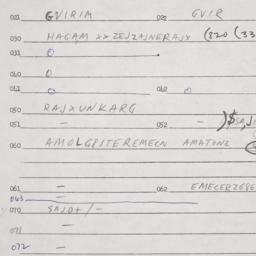 021 GVIRIM 022 GVIR
030 MAGAM XX ZEJZAJNERAJX (320 (33
031 0
040 0
041 0 042 0
050 RAJXUNKARG
051 – 052 –
060 AMOLGJSTEREMECN AMATONI
061 – 062 EMECERZEGE
063 –
070 SAJD+/–
071 –
072 –